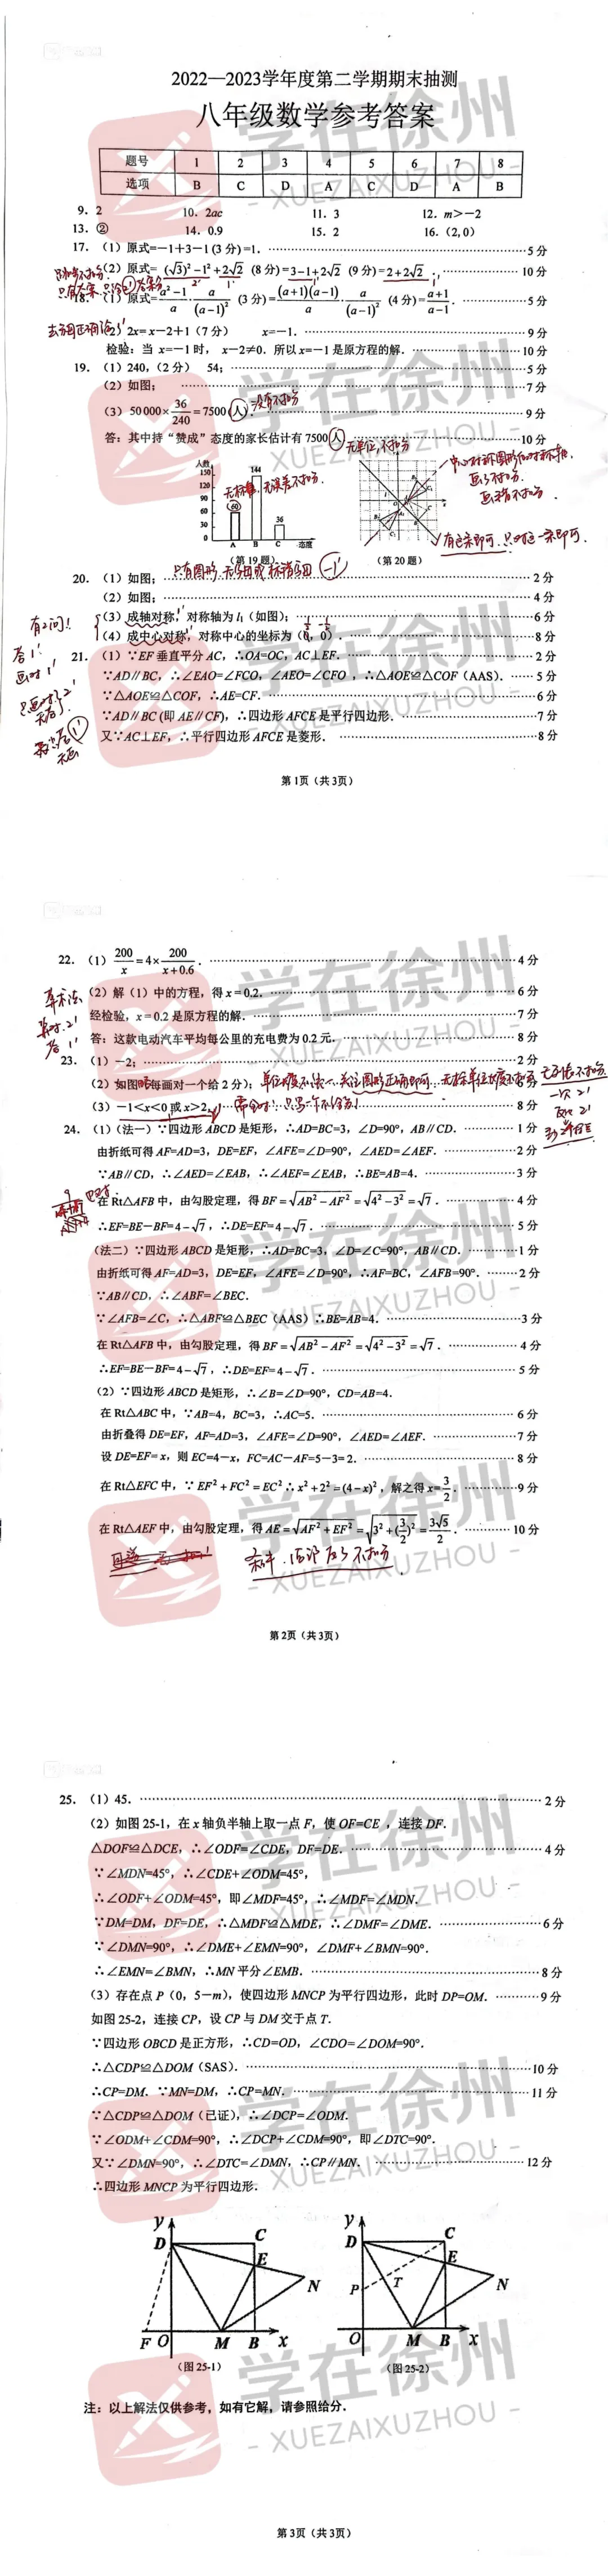 2022—2023学年度第二学期期末抽测
八年级数学参考答案
题号 1 2 3 4 5 6 7 8
选项 B C D A C D A B
9. 2 10. 2ac 11. 3 12. m>-2
13. ② 14. 0.9 15. 2 16. (2,0)
17. (1) 原式=-1+3-1 (3分) =1. ……5分
(2) 原式= (√3)²-1²+2√2 (8分) =3-1+2√2 (9分) =2+2√2. ……10分
18. (1) 原式= (a²-1)/a · a/(a-1)² (3分) = (a+1)(a-1)/a · a/(a-1)² (4分) = (a+1)/(a-1). ……5分
(2) 2x=x-2+1 (7分) x=-1. ……9分
检验:当 x=-1时, x-2≠0. 所以x=-1是原方程的解. ……10分
19. (1) 240, (2分) 54; ……5分
(2) 如图; ……7分
(3) 50 000×36/240=7500(人). 没有不扣分 ……9分
答:其中持“赞成”态度的家长估计有7500人. 无单位,不扣分 ……10分
人数
150
120
90
60
30
0
60
144
36
A B C 态度
(第19题)
(第20题)
20. (1) 如图; ……2分
(2) 如图; ……4分
(3) 成轴对称,对称轴为l₁(如图); ……6分
(4) 成中心对称,对称中心的坐标为 ……8分
21. (1) ∵EF垂直平分AC, ∴OA=OC, AC⊥EF. ……2分
∵AD∥BC, ∴∠EAO=∠FCO, ∠AEO=∠CFO, ∴△AOE≌△COF (AAS). ……5分
∵△AOE≌△COF, ∴AE=CF. ……6分
∵AD∥BC (即AE∥CF), ∴四边形AFCE是平行四边形. ……7分
又∵AC⊥EF, ∴平行四边形AFCE是菱形. ……8分
第1页(共3页)
22. (1) 200/x=4×200/(x+0.6). ……4分
(2) 解(1)中的方程,得x=0.2. ……6分
经检验, x=0.2是原方程的解. ……7分
答:这款电动汽车平均每公里的充电费为0.2元. ……8分
23. (1) -2; ……2分
(2) 如图(每画对一个给2分);
(3) -1<x<0或x>2. ……8分
24. (1) (法一) ∵四边形ABCD是矩形, ∴AD=BC=3, ∠D=90°, AB∥CD. ……1分
由折纸可得AF=AD=3, DE=EF, ∠AFE=∠D=90°, ∠AED=∠AEF. ……2分
∵AB∥CD, ∴∠AED=∠EAB, ∴∠AEF=∠EAB, ∴BE=AB=4. ……3分
在Rt△AFB中,由勾股定理,得BF=√(AB²-AF²)=√(4²-3²)=√7. ……4分
∴EF=BE-BF=4-√7, ∴DE=EF=4-√7. ……5分
(法二) ∵四边形ABCD是矩形, ∴AD=BC=3, ∠D=∠C=90°, AB∥CD. ……1分
由折纸可得AF=AD=3, DE=EF, ∠AFE=∠D=90°, ∴AF=BC, ∠AFB=90°. ……2分
∵AB∥CD, ∴∠ABF=∠BEC.
∵∠AFB=∠C, ∴△ABF≌△BEC (AAS) ∴BE=AB=4. ……3分
在Rt△AFB中,由勾股定理,得BF=√(AB²-AF²)=√(4²-3²)=√7. ……4分
∴EF=BE-BF=4-√7, ∴DE=EF=4-√7. ……5分
(2) ∵四边形ABCD是矩形, ∴∠B=∠D=90°, CD=AB=4.
在Rt△ABC中, ∵AB=4, BC=3, ∴AC=5. ……6分
由折叠得DE=EF, AF=AD=3, ∠AFE=∠D=90°, ∠AED=∠AEF. ……7分
设DE=EF=x, 则EC=4-x, FC=AC-AF=5-3=2. ……8分
在Rt△EFC中, ∵EF²+FC²=EC² ∴x²+2²=(4-x)², 解之得x=3/2. ……9分
在Rt△AEF中,由勾股定理,得AE=√(AF²+EF²)=√(3²+(3/2)²)=3√5/2. ……10分
第2页(共3页)
25. (1) 45. ……2分
(2) 如图25-1,在x轴负半轴上取一点F,使OF=CE,连接DF.
△DOF≌△DCE, ∴∠ODF=∠CDE, DF=DE. ……4分
∵∠MDN=45°, ∴∠CDE+∠ODM=45°,
∴∠ODF+∠ODM=45°, 即∠MDF=45°, ∴∠MDF=∠MDN.
∵DM=DM, DF=DE, ∴△MDF≌△MDE, ∴∠DMF=∠DME. ……6分
∵∠DMN=90°, ∴∠DME+∠EMN=90°, ∠DMF+∠BMN=90°.
∴∠EMN=∠BMN, ∴MN平分∠EMB. ……8分
(3) 存在点P(0, 5-m),使四边形MNCP为平行四边形,此时DP=OM. ……9分
如图25-2,连接CP,设CP与DM交于点T.
∵四边形OBCD是正方形, ∴CD=OD, ∠CDO=∠DOM=90°.
∴△CDP≌△DOM (SAS). ……10分
∴CP=DM. ∵MN=DM, ∴CP=MN. ……11分
∵△CDP≌△DOM(已证), ∴∠DCP=∠ODM.
∵∠ODM+∠CDM=90°, ∴∠DCP+∠CDM=90°, 即∠DTC=90°.
又∵∠DMN=90°, ∴∠DTC=∠DMN, ∴CP∥MN. ……12分
∴四边形MNCP为平行四边形.
y D C E N F O M B x
(图25-1)
y D C E P T N O M B x
(图25-2)
注:以上解法仅供参考,如有它解,请参照给分.
第3页(共3页)
学在徐州
- XUEZAIXUZHOU -